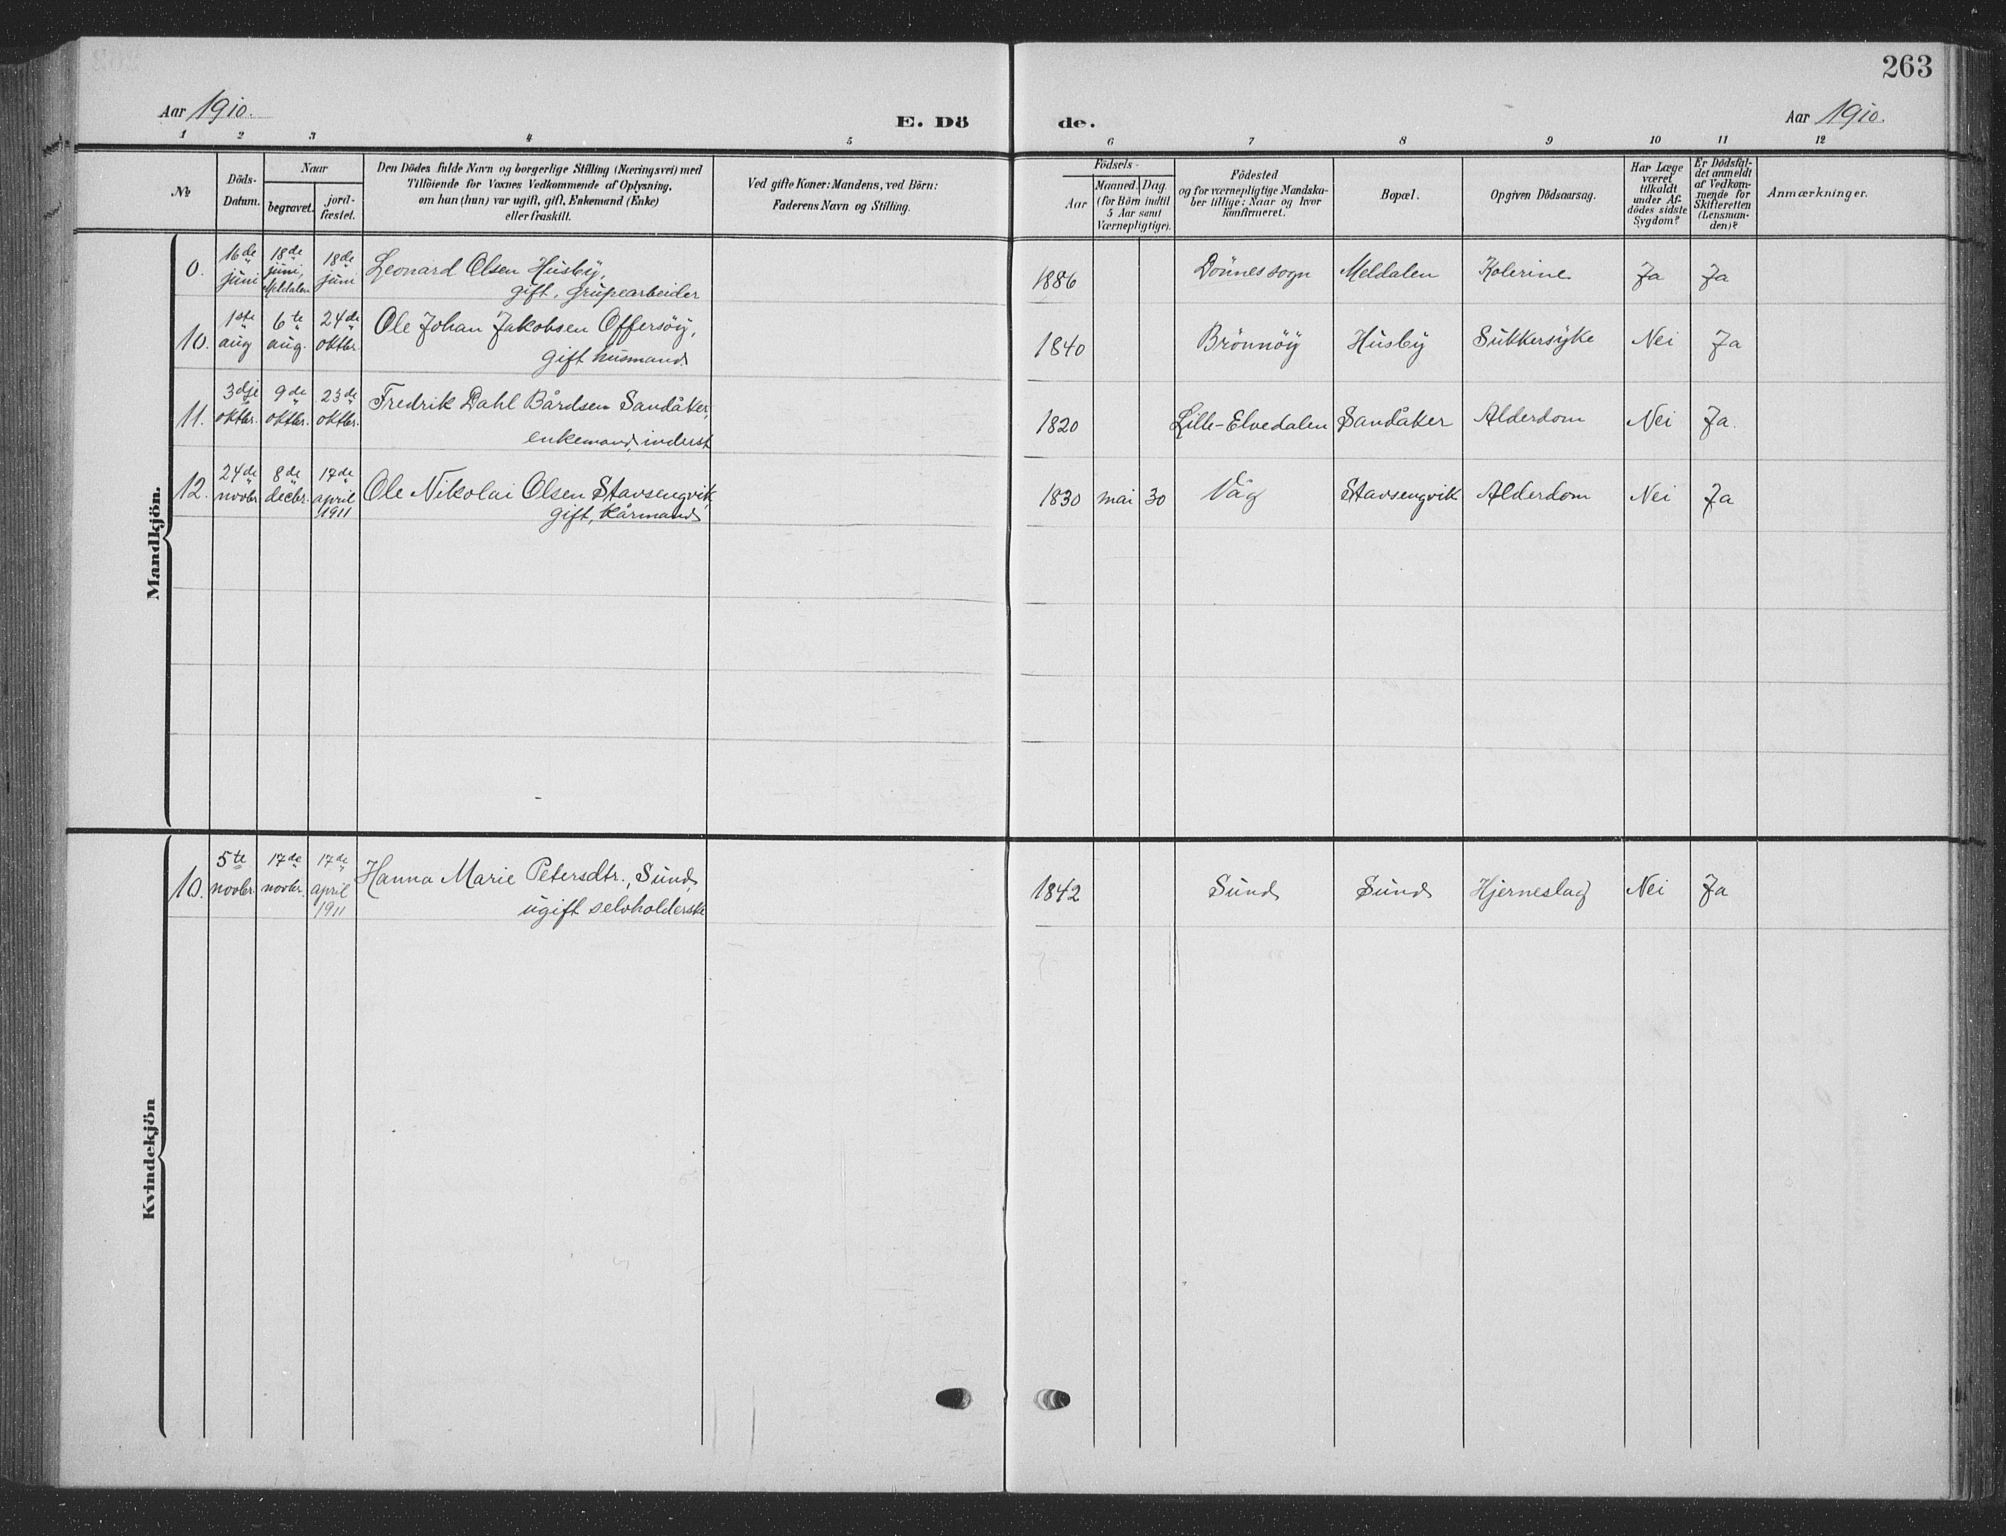 263
Aar 1910.
E. Dö de.
Aar 1910.
1 2 3 4 5 6 7 8 9 10 11 12
№
Döds-
Datum.
Naar
begravet.
jord-
fæstet.
Den Dödes fulde Navn og borgerlige Stilling (Næringsvei) med
Tilföiende for Voxnes Vedkommende af Oplysning,
om han (hun) var ugift, gift, Enkemand (Enke)
eller fraskilt.
Ved gifte Koner: Mandens, ved Börn:
Faderens Navn og Stilling.
Födsels-
Aar
Maaned. Dag.
(for Börn indtil
5 Aar samt
Værnepligtige).
Födested
og for værnepligtige Mandska-
ber tillige: Naar og hvor
konfirmeret.
Bopæl.
Opgiven Dödsaarsag.
Har Læge
været
tilkaldt
under Af-
dödes sidste
Sygdom?
Er Dödsfal-
det anmeldt
af Vedkom-
mende for
Skifteretten
(Lensman-
den)?
Anmærkninger.
Mandkjön.
0. 16de juni 18de juni, Meldalen 18de juni Leonard Olsen Husby,
gift, grupearbeider
1886 Dönnes sogn Meldalen Kolerine Ja Ja
10. 1ste aug 6te aug. 24de oktbr. Ole Johan Jakobsen Offersöy,
gift husmand
1840 Brönnöy Husby Sukkersyke Nei Ja
11. 3dje oktbr. 9de oktbr. 23de oktbr. Fredrik Dahl Bårdsen Sandåker,
enkemand, inderst
1820 Lille-Elvedalen Sandåker Alderdom Nei Ja.
12. 24de novbr. 8de decbr. 17de april 1911 Ole Nikolai Olsen Stavsengvik,
gift, kårmand
1830 mai 30 Våg Stavsengvik Alderdom Nei Ja
Kvindekjön
10. 5te novbr. 17de novbr. 17de april 1911 Hanna Marie Petersdtr., Sund,
ugift selvholderske
1842 Sund Sund Hjerneslag Nei Ja